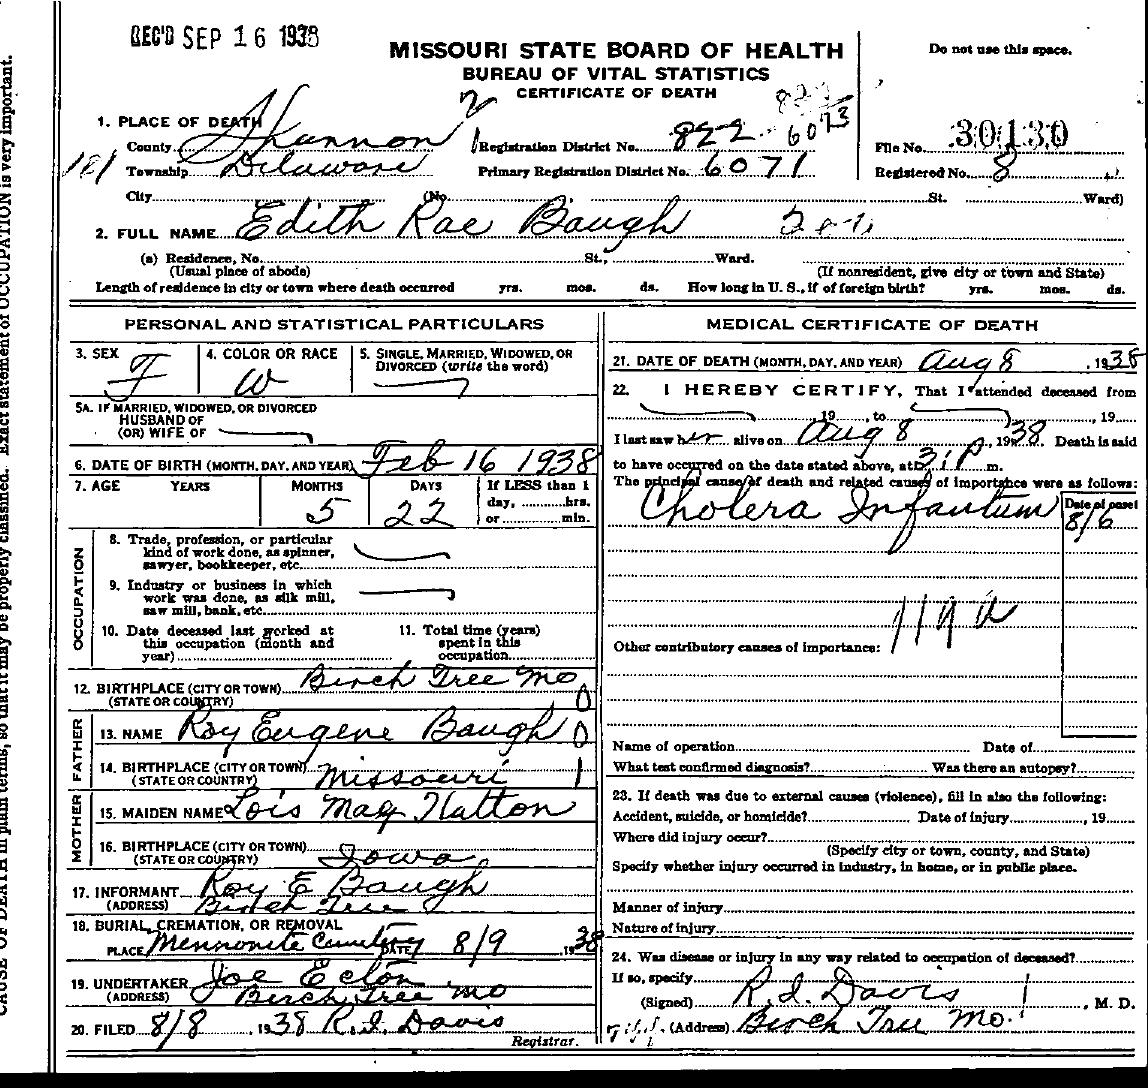 REC'D SEP 16 1938
MISSOURI STATE BOARD OF HEALTH
BUREAU OF VITAL STATISTICS
CERTIFICATE OF DEATH
Do not use this space.
1. PLACE OF DEATH
County Shannon
Registration District No. 822 6073
File No. 30130
181 Township Delaware
Primary Registration District No. 6071
Registered No. 8
City (No. St. Ward)
2. FULL NAME Edith Rae Baugh
(a) Residence, No. St., Ward.
(Usual place of abode) (If nonresident, give city or town and State)
Length of residence in city or town where death occurred yrs. mos. ds. How long in U. S., if of foreign birth? yrs. mos. ds.
PERSONAL AND STATISTICAL PARTICULARS
3. SEX F
4. COLOR OR RACE W
5. SINGLE, MARRIED, WIDOWED, OR DIVORCED (write the word)
5A. IF MARRIED, WIDOWED, OR DIVORCED
HUSBAND OF
(OR) WIFE OF
6. DATE OF BIRTH (MONTH, DAY, AND YEAR) Feb 16 1938
7. AGE YEARS MONTHS DAYS If LESS than 1
5 22 day, hrs.
or min.
OCCUPATION
8. Trade, profession, or particular
kind of work done, as spinner,
sawyer, bookkeeper, etc.
9. Industry or business in which
work was done, as silk mill,
saw mill, bank, etc.
10. Date deceased last worked at
this occupation (month and
year)
11. Total time (years)
spent in this
occupation
12. BIRTHPLACE (CITY OR TOWN) Birch Tree Mo
(STATE OR COUNTRY) 0
FATHER
13. NAME Roy Eugene Baugh 0
14. BIRTHPLACE (CITY OR TOWN) Missouri 1
(STATE OR COUNTRY)
MOTHER
15. MAIDEN NAME Lois May Hatton
16. BIRTHPLACE (CITY OR TOWN)
(STATE OR COUNTRY) Iowa
17. INFORMANT Roy E Baugh
(ADDRESS) Birch Tree
18. BURIAL, CREMATION, OR REMOVAL
PLACE Mennonite Cemetery DATE 8/9 1938
19. UNDERTAKER Joe Ecton
(ADDRESS) Birch Tree Mo
20. FILED 8/8, 1938 R. I. Davis
Registrar.
MEDICAL CERTIFICATE OF DEATH
21. DATE OF DEATH (MONTH, DAY, AND YEAR) Aug 8, 1938
22. I HEREBY CERTIFY, That I attended deceased from
, 19 to , 19
I last saw her alive on Aug 8, 1938. Death is said
to have occurred on the date stated above, at 3:1 P m.
The principal cause of death and related causes of importance were as follows:
Date of onset
Cholera Infantum 8/6
119 a
Other contributory causes of importance:
Name of operation Date of
What test confirmed diagnosis? Was there an autopsy?
23. If death was due to external causes (violence), fill in also the following:
Accident, suicide, or homicide? Date of injury , 19
Where did injury occur?
(Specify city or town, county, and State)
Specify whether injury occurred in industry, in home, or in public place.
Manner of injury
Nature of injury
24. Was disease or injury in any way related to occupation of deceased?
If so, specify
(Signed) R. I. Davis, M. D.
(Address) Birch Tree Mo.
CAUSE OF DEATH in plain terms, so that it may be properly classified. Exact statement of OCCUPATION is very important.